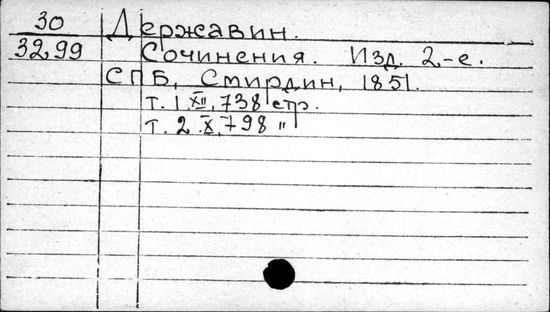 30
3299
Державин.
Сочинения. Изд. 2-е.
СПБ, Смирдин, 1851.
т. 1. XII, 738 стр.
т. 2. X, 798 "